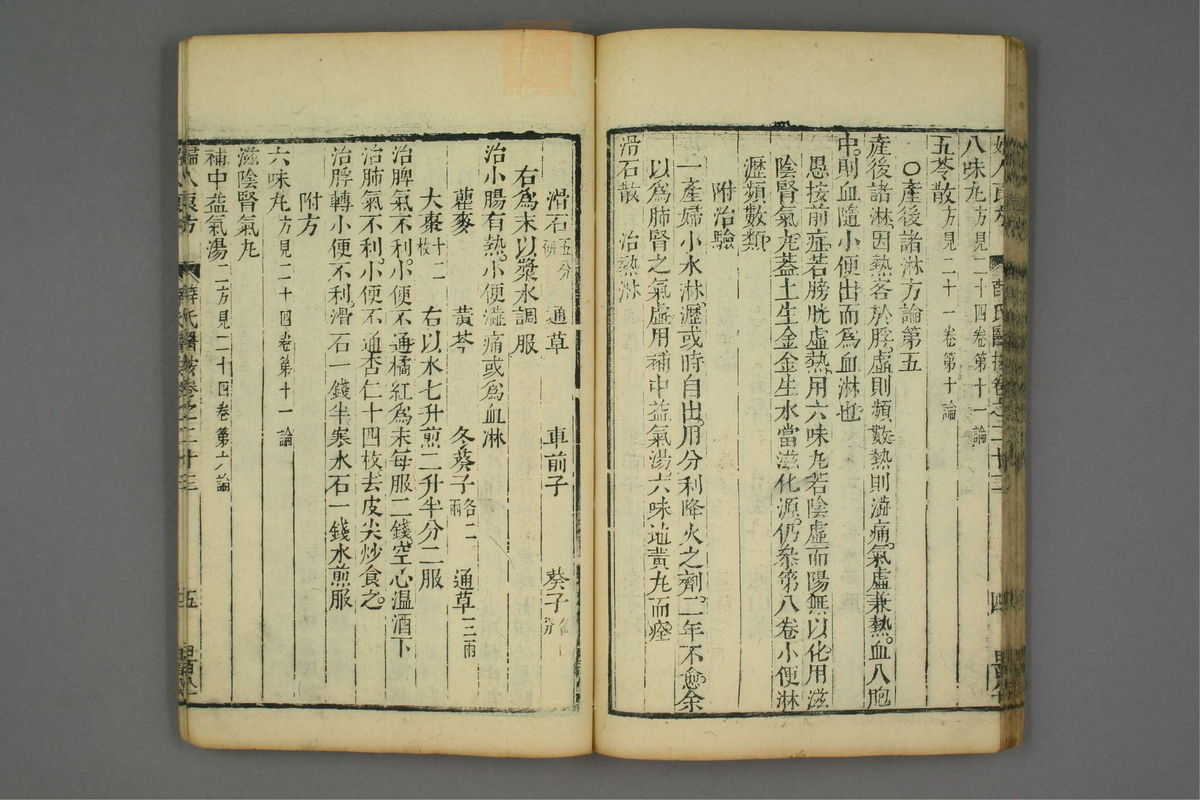 八味丸方見二十四卷第十一論
五苓散方見二十一卷第十論
〇產後諸淋方論第五
產後諸淋因熱客於脬虛則頻數熱則澁痛氣虛兼熱血入胞
中則血隨小便出而爲血淋也
愚按前症若膀胱虛熱用六味丸若陰虛而陽無以化用滋
陰腎氣丸蓋土生金金生水當滋化源仍叅第八卷小便淋
瀝頻數類
附治驗
一產婦小水淋瀝或時自出用分利降火之劑二年不愈余
以爲肺腎之氣虛用補中益氣湯六味地黃丸而痊
滑石散 治熱淋
滑石五分 通草 車前子 葵子
右爲末以漿水調服
治小腸有熱小便澁痛或爲血淋
瞿麥 黃芩 冬葵子各二兩 通草三兩
大棗十二枚 右以水七升煎二升半分二服
治脾氣不利小便不通橘紅爲末每服二錢空心温酒下
治肺氣不利小便不通杏仁十四枚去皮尖炒食之
治脬轉小便不利滑石一錢半寒水石一錢水煎服
附方
六味丸方見二十四卷第十一論
滋陰腎氣丸
補中益氣湯二方見二十四卷第六論
薛氏醫按卷之二十三 五